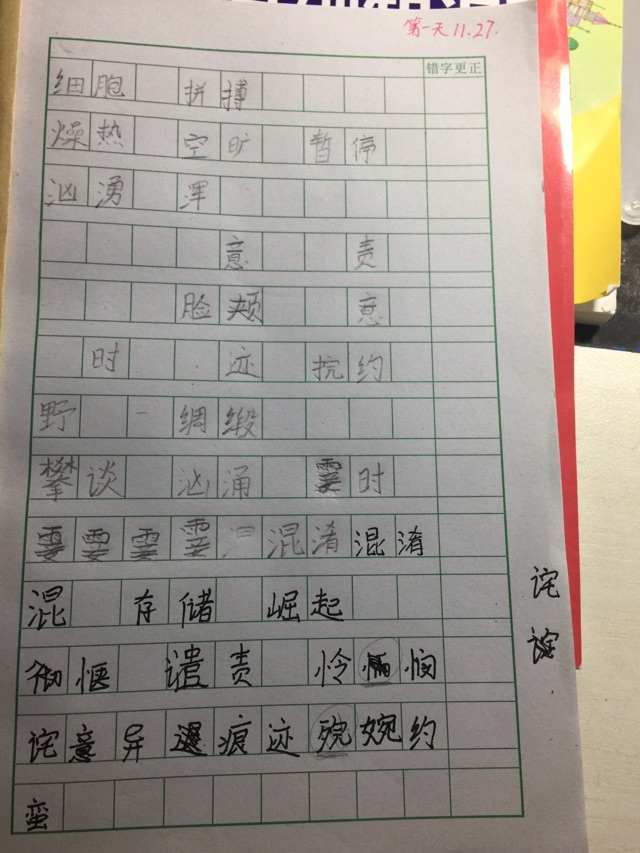 第一天 11.27.
错字更正
细胞 拼搏
燥热 空旷 暂停
汹湧 浑
意 责
脸颊 意
时 迹 捖约
野 绸缎
攀谈 汹涌 时
混淆混淆
混 存储 崛起
诧
彻惬 谴责 怜悯
诧意异 痕迹 婉约
蛮